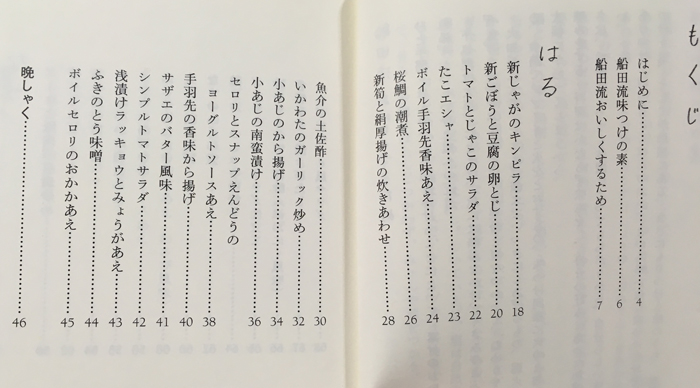 もくじ
はじめに 4
船田流味つけの素 6
船田流おいしくするため 7
はる
新じゃがのキンピラ 18
新ごぼうと豆腐の卵とじ 20
トマトとじゃこのサラダ 22
たこエシャ 23
ボイル手羽先香味あえ 24
桜鯛の潮煮 26
新筍と絹厚揚げの炊きあわせ 28
魚介の土佐酢 30
いかわたのガーリック炒め 32
小あじのから揚げ 34
小あじの南蛮漬け 36
セロリとスナップえんどうの
ヨーグルトソースあえ 38
手羽先の香味から揚げ 40
サザエのバター風味 41
シンプルトマトサラダ 42
浅漬けラッキョウとみょうがあえ 43
ふきのとう味噌 44
ボイルセロリのおかかあえ 45
晩しゃく 46